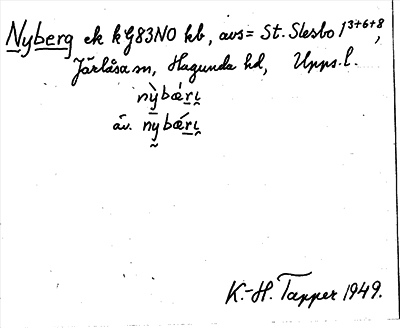 Nyberg ek kG83NO kb, avs= St. Slesbo 1³⁺⁶⁺⁸,
Järlåsa sn, Hagunda hd, Upps. l.
nỳbǽrı̣
äv. nybǽrı̣
K.-H. Tapper 1949.